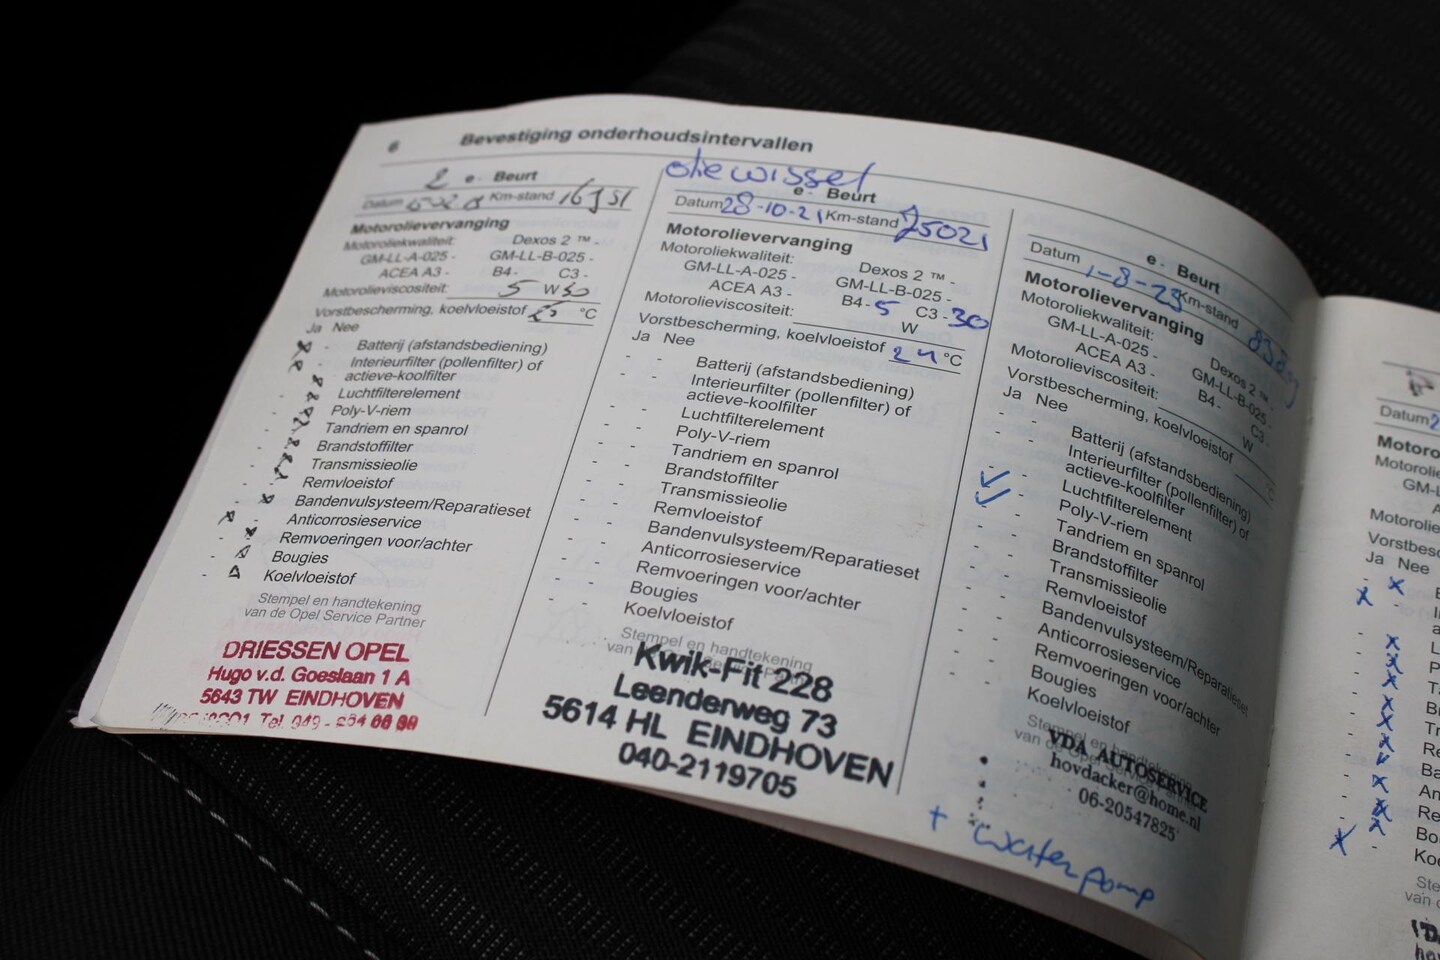 6 Bevestiging onderhoudsintervallen
2 e - Beurt
Datum Km-stand
Motorolievervanging
Motoroliekwaliteit: Dexos 2 ™ -
GM-LL-A-025 - GM-LL-B-025 -
ACEA A3 - B4 - C3 -
Motorolieviscositeit: 5 W 30
Vorstbescherming, koelvloeistof °C
Ja Nee
Batterij (afstandsbediening)
Interieurfilter (pollenfilter) of
actieve-koolfilter
Luchtfilterelement
Poly-V-riem
Tandriem en spanrol
Brandstoffilter
Transmissieolie
Remvloeistof
Bandenvulsysteem/Reparatieset
Anticorrosieservice
Remvoeringen voor/achter
Bougies
Koelvloeistof
Stempel en handtekening
van de Opel Service Partner
DRIESSEN OPEL
Hugo v.d. Goeslaan 1 A
5643 TW EINDHOVEN
oliewissel
e - Beurt
Datum 28-10-21 Km-stand 75021
Motorolievervanging
Motoroliekwaliteit: Dexos 2 ™ -
GM-LL-A-025 - GM-LL-B-025 -
ACEA A3 - B4 - C3 -
Motorolieviscositeit: 5 W 30
Vorstbescherming, koelvloeistof 24 °C
Ja Nee
Batterij (afstandsbediening)
Interieurfilter (pollenfilter) of
actieve-koolfilter
Luchtfilterelement
Poly-V-riem
Tandriem en spanrol
Brandstoffilter
Transmissieolie
Remvloeistof
Bandenvulsysteem/Reparatieset
Anticorrosieservice
Remvoeringen voor/achter
Bougies
Koelvloeistof
Stempel en handtekening
Kwik-Fit 228
Leenderweg 73
5614 HL EINDHOVEN
040-2119705
e - Beurt
Datum 1-8-23 Km-stand
Motorolievervanging
Motoroliekwaliteit: Dexos 2 ™ -
GM-LL-A-025 - GM-LL-B-025 -
ACEA A3 - B4 - C3 -
Motorolieviscositeit: W
Vorstbescherming, koelvloeistof °C
Ja Nee
Batterij (afstandsbediening)
Interieurfilter (pollenfilter) of
actieve-koolfilter
Luchtfilterelement
Poly-V-riem
Tandriem en spanrol
Brandstoffilter
Transmissieolie
Remvloeistof
Bandenvulsysteem/Reparatieset
Anticorrosieservice
Remvoeringen voor/achter
Bougies
Koelvloeistof
Stempel en handtekening
van de Opel Service
VDA AUTOSERVICE
hovdacker@home.nl
06-20547825
+ waterpomp
Datum
Ja Nee